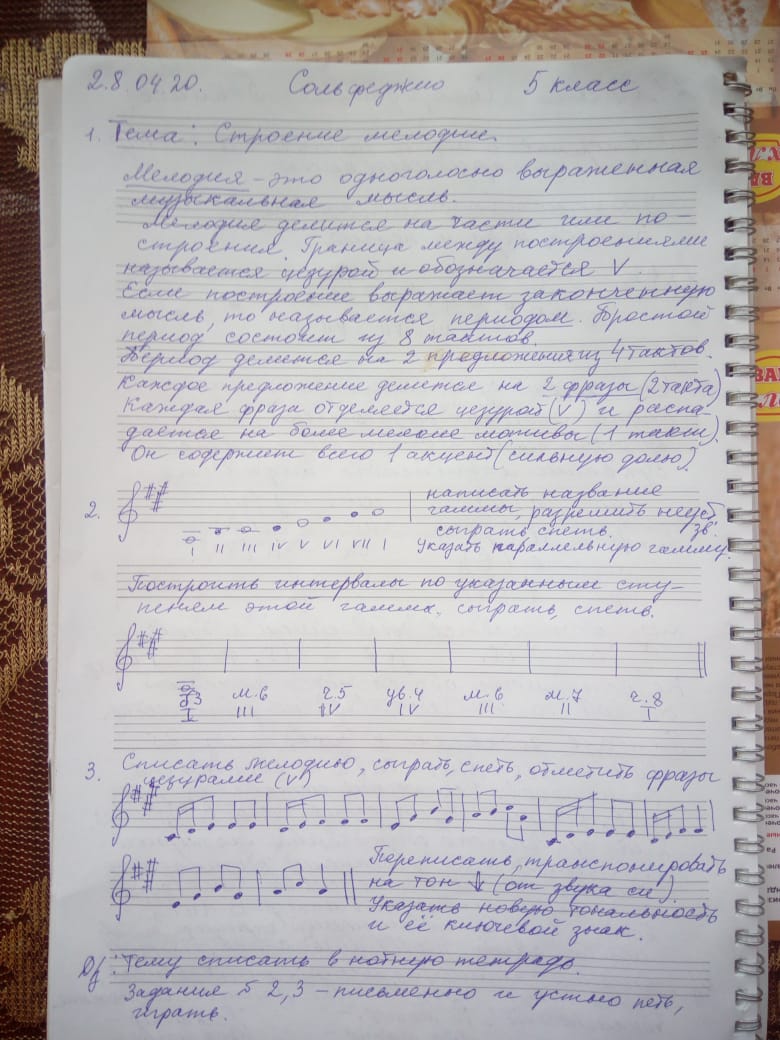 28.04.20. Сольфеджио 5 класс
1. Тема: Строение мелодии.
Мелодия - это одноголосно выраженная
музыкальная мысль.
Мелодия делится на части или по-
строения. Граница между построениями
называется цезурой и обозначается V.
Если построение выражает законченную
мысль, то называется периодом. Простой
период состоит из 8 тактов.
Период делится на 2 предложения из 4 тактов.
Каждое предложение делится на 2 фразы (2 такта)
Каждая фраза отделяется цезурой (V) и распа-
дается на более мелкие мотивы (1 такт).
Он содержит всего 1 акцент (сильную долю).
2.
написать название
гаммы, разрешить неуст.
сыграть спеть. зв.
Указать параллельную гамму.
I II III IV V VI VII I
Построить интервалы по указанным сту-
пеням этой гаммы, сыграть, спеть.
б3 м.6 ч.5 ув.4 м.6 м.7 ч.8
I III IV IV III II I
3. Списать мелодию, сыграть, спеть, отметить фразы
цезурами (V)
Переписать, транспонировать
на тон ↓ (от звука си).
Указать новую тональность
и её ключевой знак.
Д/з: Тему списать в нотную тетрадь.
Задания 2, 3 - письменно и устно петь,
играть.